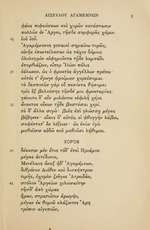 ΑΙΣΧΥΛΟΥ ΑΓΑΜΕΜΝΩΝ
φάους πιφαύσκων καὶ χορῶν κατάστασιν
πολλῶν ἐν Ἄργει, τῆσδε συμφορᾶς χάριν.
ἰοὺ ἰού.
Ἀγαμέμνονος γυναικὶ σημαίνω τορῶς,
εὐνῆς ἐπαντείλασαν ὡς τάχος δόμοις
ὀλολυγμὸν εὐφημοῦντα τῇδε λαμπάδι
ἐπορθιάζειν, εἴπερ Ἰλίου πόλις
ἑάλωκεν, ὡς ὁ φρυκτὸς ἀγγέλλων πρέπει·
αὐτός τ' ἔγωγε φροίμιον χορεύσομαι.
τὰ δεσποτῶν γὰρ εὖ πεσόντα θήσομαι
τρὶς ἓξ βαλούσης τῆσδέ μοι φρυκτωρίας.
γένοιτο δ' οὖν μολόντος εὐφιλῆ χέρα
ἄνακτος οἴκων τῇδε βαστάσαι χερί.
τὰ δ' ἄλλα σιγῶ· βοῦς ἐπὶ γλώσσῃ μέγας
βέβηκεν· οἶκος δ' αὐτός, εἰ φθογγὴν λάβοι,
σαφέστατ' ἂν λέξειεν· ὡς ἑκὼν ἐγὼ
μαθοῦσιν αὐδῶ κοὐ μαθοῦσι λήθομαι.
ΧΟΡΟΣ
δέκατον μὲν ἔτος τόδ' ἐπεὶ Πριάμου
μέγας ἀντίδικος,
Μενέλαος ἄναξ ἠδ' Ἀγαμέμνων,
διθρόνου Διόθεν καὶ δισκήπτρου
τιμῆς ὀχυρὸν ζεῦγος Ἀτρειδᾶν,
στόλον Ἀργείων χιλιοναύταν
τῆσδ' ἀπὸ χώρας
ἦραν, στρατιῶτιν ἀρωγήν,
μέγαν ἐκ θυμοῦ κλάζοντες Ἄρη
τρόπον αἰγυπιῶν,